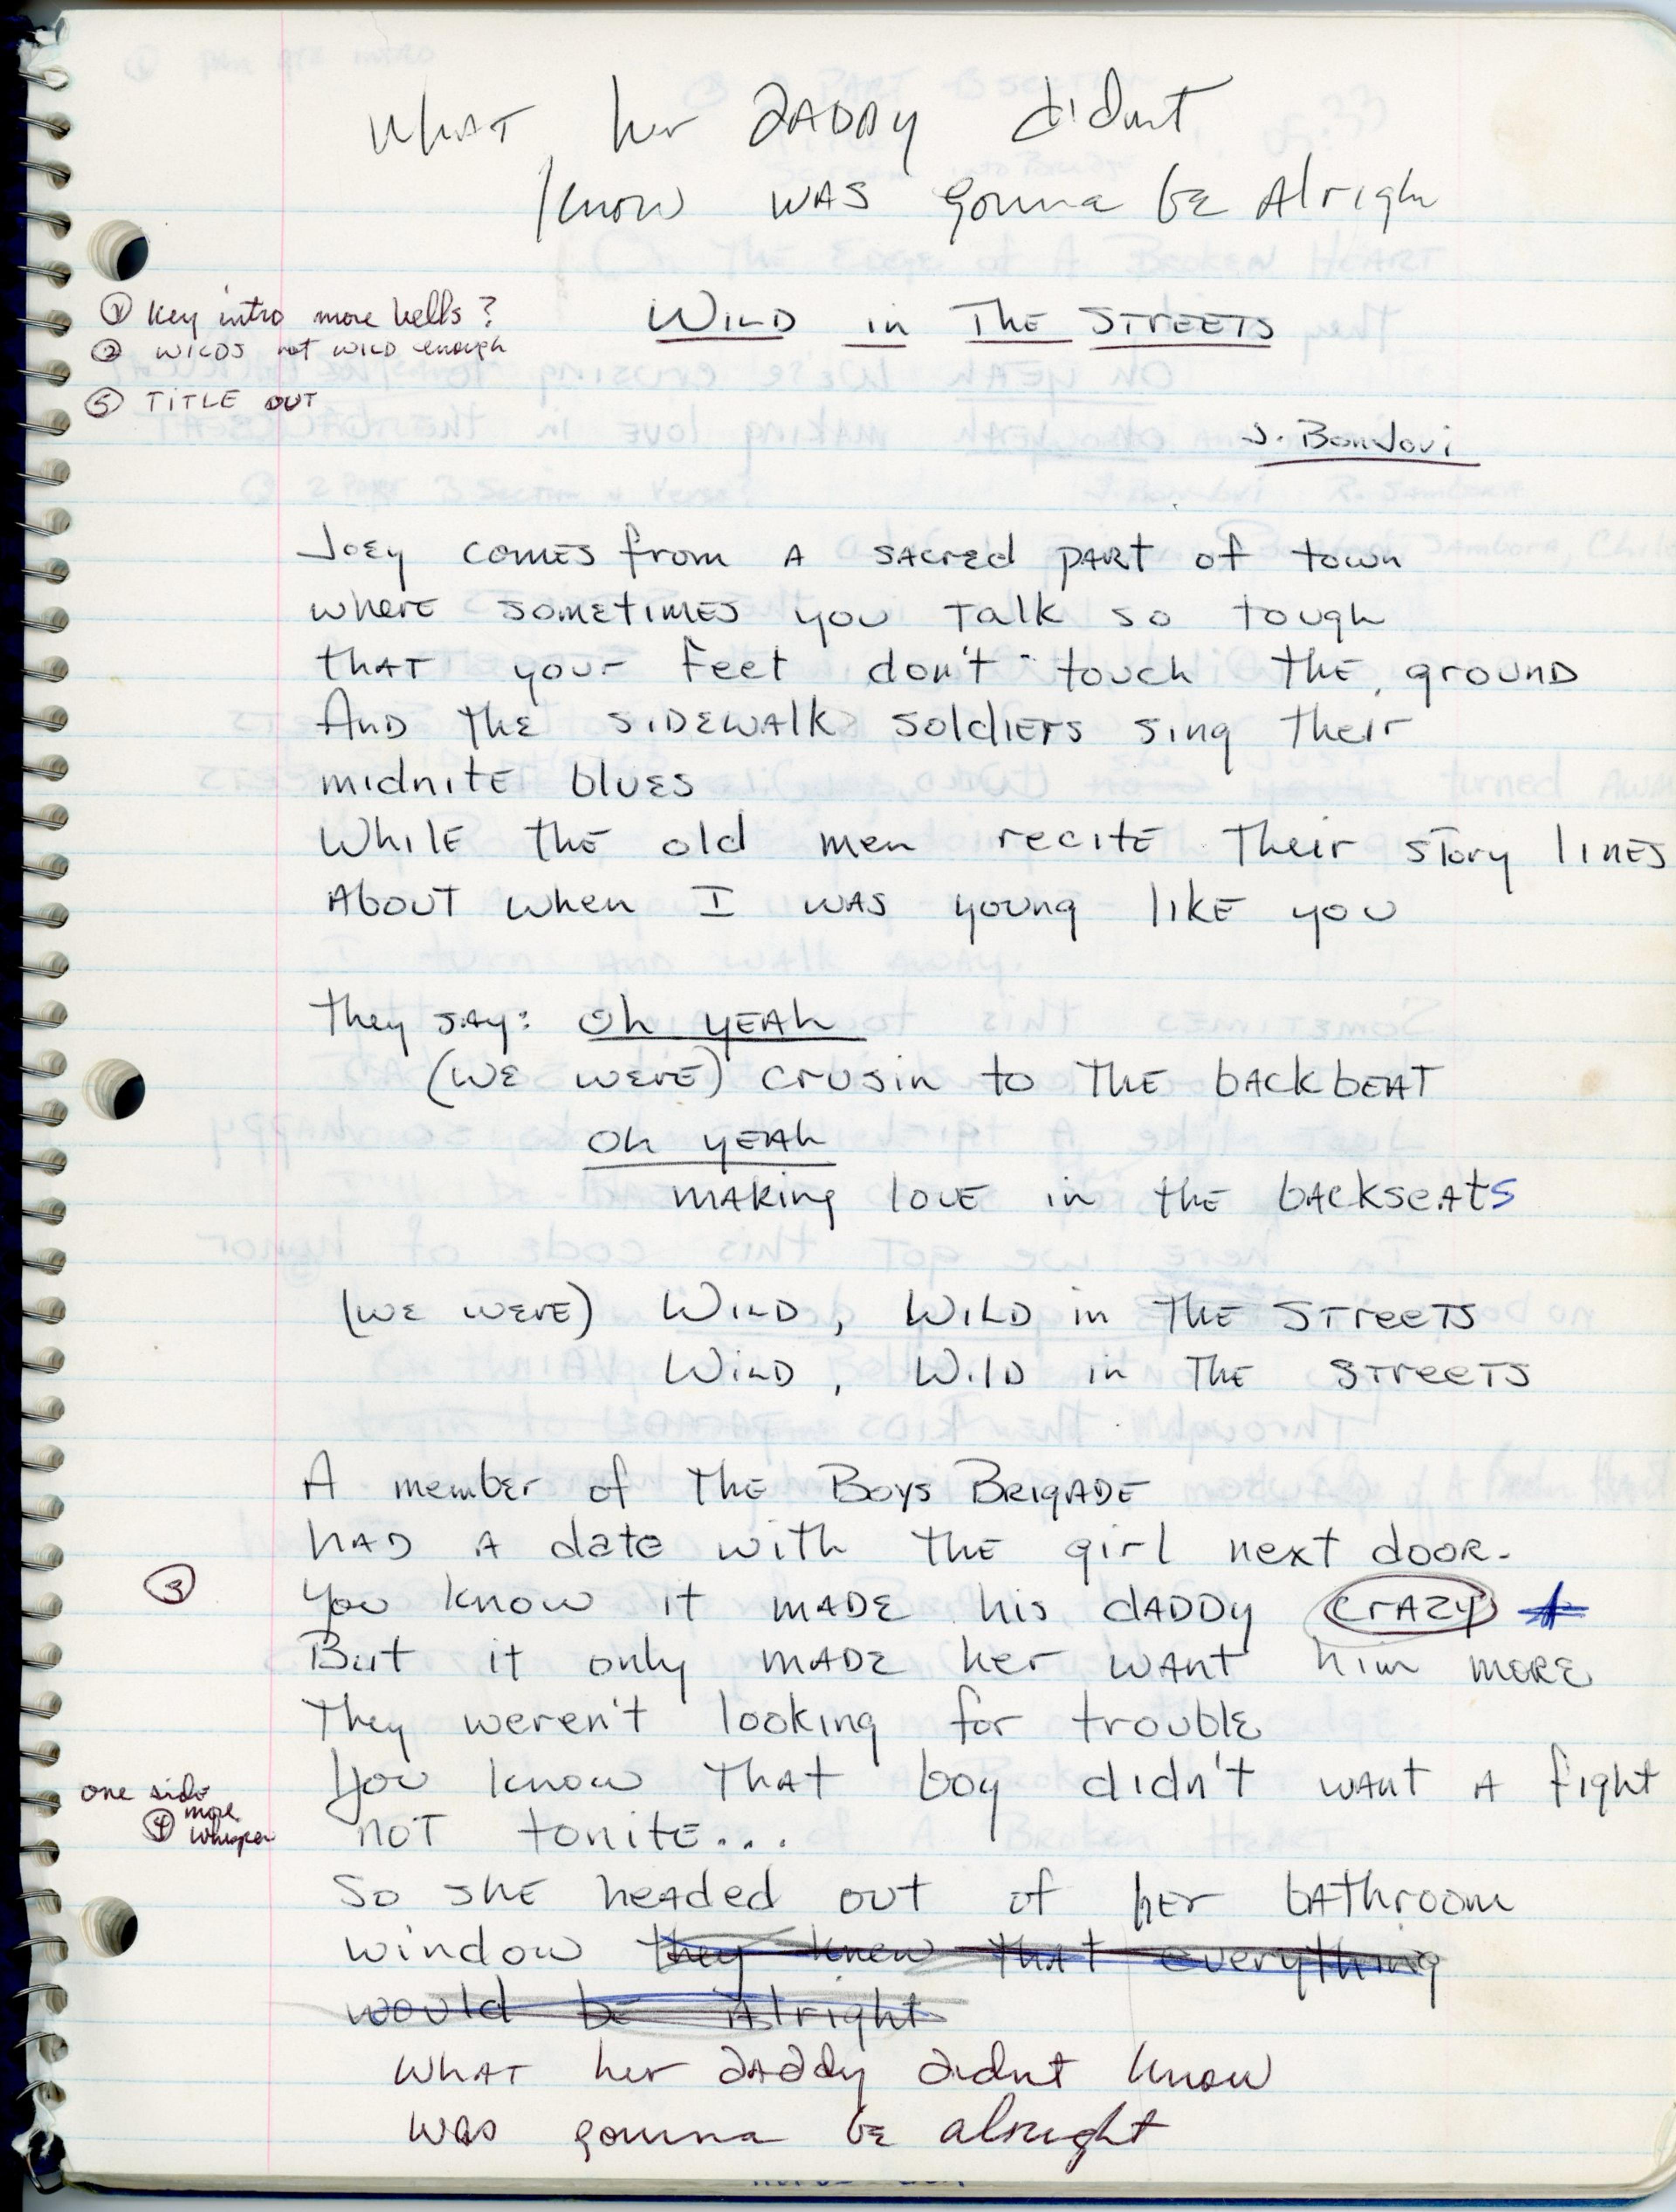 WHAT her DADDY didnt
Know WAS gonna BE Alrigh
① Key intro more bells?
② WILDS not WILD enough
⑤ TITLE OUT
WILD in THE STREETS
J. BonJovi
Joey comes from A sacred part of town
where sometimes you Talk so tough
that your feet don't touch the ground
And the sidewalk soldiers sing their
midnite blues
While the old men recite their story lines
About when I was young like you
They say: Oh yeah
(we were) crusin to the backbeat
Oh yeah
making love in the backseats
(we were) Wild, Wild in the Streets
Wild, Wild in the Streets
A member of the Boys Brigade
had a date with the girl next door.
③ You know it made his daddy crazy
But it only made her want him more
They weren't looking for trouble
You know that boy didn't want a fight
one side
④ more
whisper
not tonite...
So she headed out of her bathroom
window they knew that everything
would be alright
What her daddy didnt know
was gonna be alright